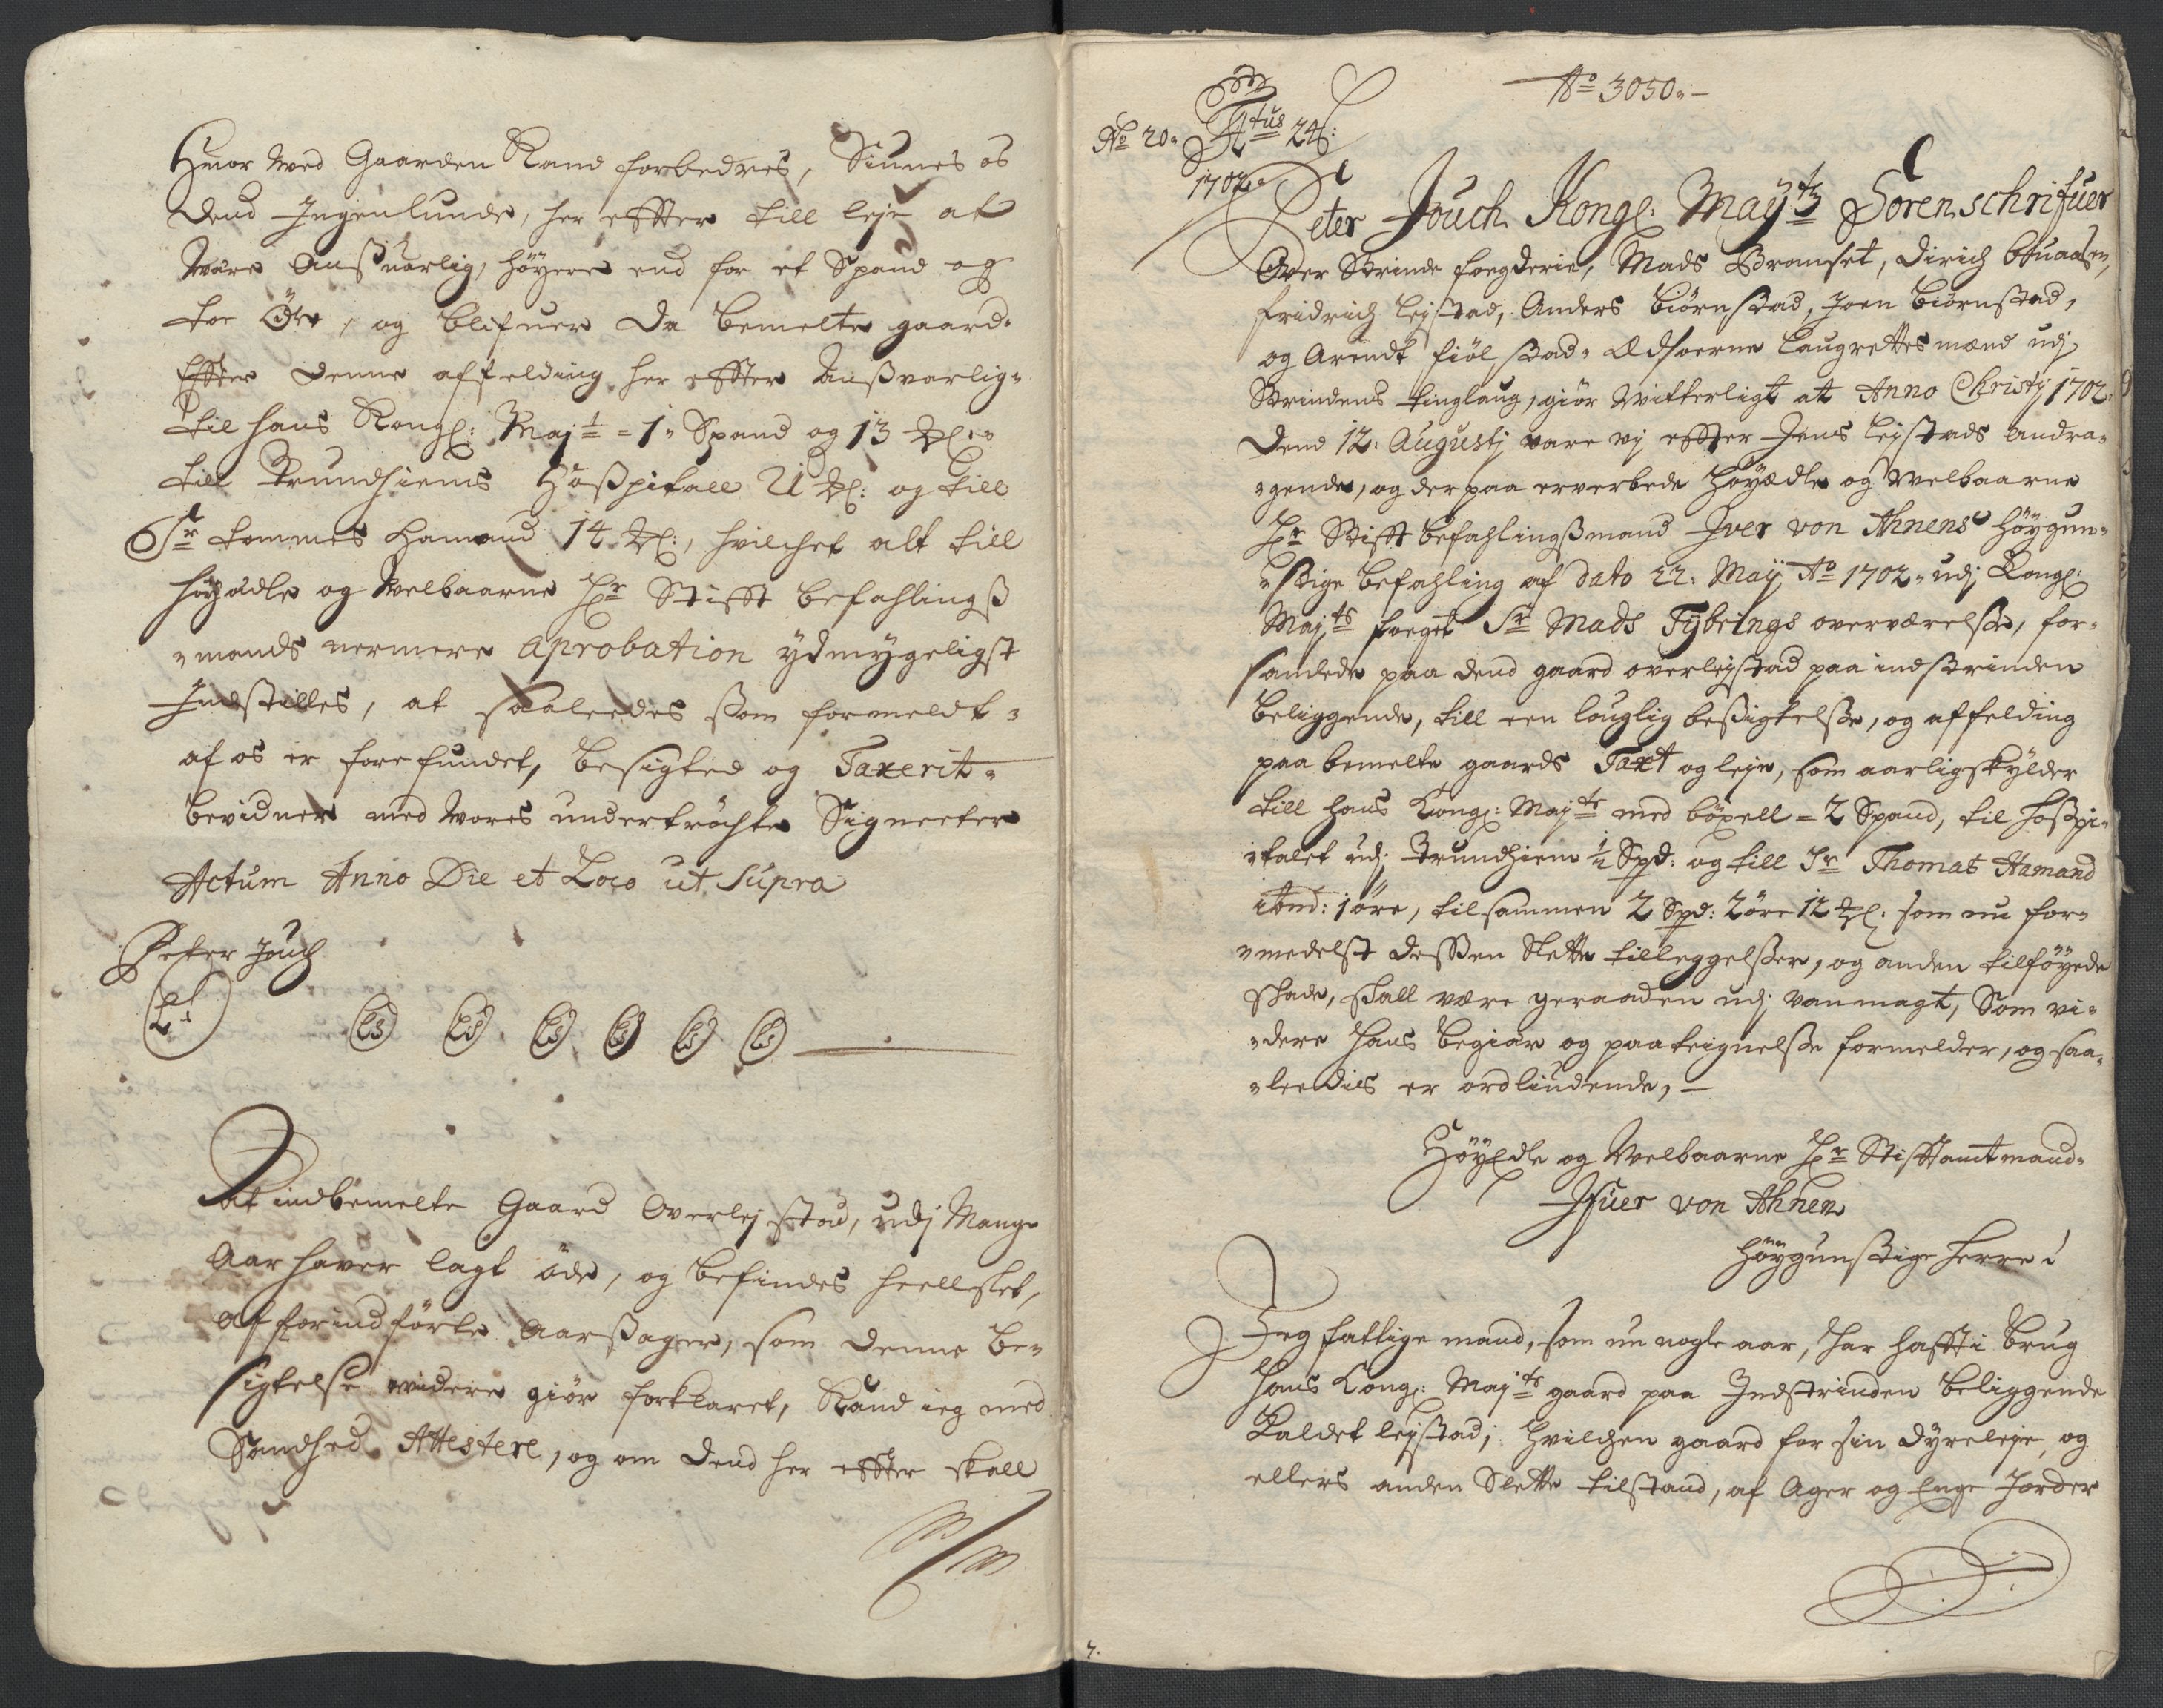 Huor Wed Gaarden Kand forbedres, Siunes os
Dend Ingenlunde, her effter till leje at
Være Anssuarlig, höyere end for et Spand og
toe Öre, og blifuer Da bemelte gaard
Effter Denne affelding her effter Anssvarlig
til hans Kongl: Majt = 1 Spand og 13 
till Trundhiems Hosspitall 21  og till
Sr tommes Hamand 14  hvilchet alt till
höyædle og Welbaarne Hr Stifft befahlingss
mands nermere Aprobation ydmygeligst
Indstilles, at saaleedes som formeldt
af os er forefundet, besigted og Taxerit
bevidner med Vores undertröchte Signeter
Actum Anno Die et Loco ut Supra
Peter Jouch
LS LS LS LS LS LS LS
At indbemelte Gaard Overlejstad, udj Mange
Aar haver lagt öde, og befindes heellslet,
af forindförte Aarssager, som Denne be-
sigtelse videre giör forklaret, Kand ieg med
Sandhed Attestere, og om Dend her effter skall
No 3050
No 20 Atus 24:
1702
Peter Jouch Kongl: Mayts Sorenschrifuer
Over Strinde foegderie, Mads Bromset, Dirich 
fridrich lejstad, Anders biörnstad, Joen biörnstad,
og Arendt fiölstad Ædsoerne laugrettesmænd udj
Strindens tinglaug, giör Witterligt at Anno Christj 1702:
Dend 12: Augustj vare vj effter Jens lejstads andra-
gende, og derpaa erverbede höyædle og Welbaarne
Hr Stifft befahlingssmand Iver von Ahnens höygun-
stige befahling af dato 22: Maÿ Ao 1702 udj Kongl:
Majts foeget Sr Mads Tÿbrings overværelse, for-
samlede paa dend gaard overlejstad paa indstrinden
beliggende, till een louglig besigtelse, og affelding
paa bemelte gaards Taxt og leje, som aarlig skylder
till hans Kongl: Majts med böxell = 2 Spand, til Hosspi-
talet udj Trundhiem ½ Spd: og till Sr Thomas Hamand
ibmd: 1 öre, tilsammen 2 Spd: 2 öre 12  som nu for-
medelst dessen Slette tilleggelsser, og anden tilföyede
skade, skall være geraaden udj vanmagt, Som vi-
dere hans begiær og paateignelsse formelder, og saa-
leedis er ordliudende,
Höyædle og Welbaarne Hr Stifftamtmand
Ifuer von Ahnen
höygunstige herre!
Jeg fattige mand, som nu nogle aar, har hafft i brug
hans Kongl: Majts gaard paa Indstrinden beliggende
Kaldet lejstad; hvilchen gaard for sin dyre leje, og
ellers anden Slette tilstand, af Ager og Enge Jorder
7.